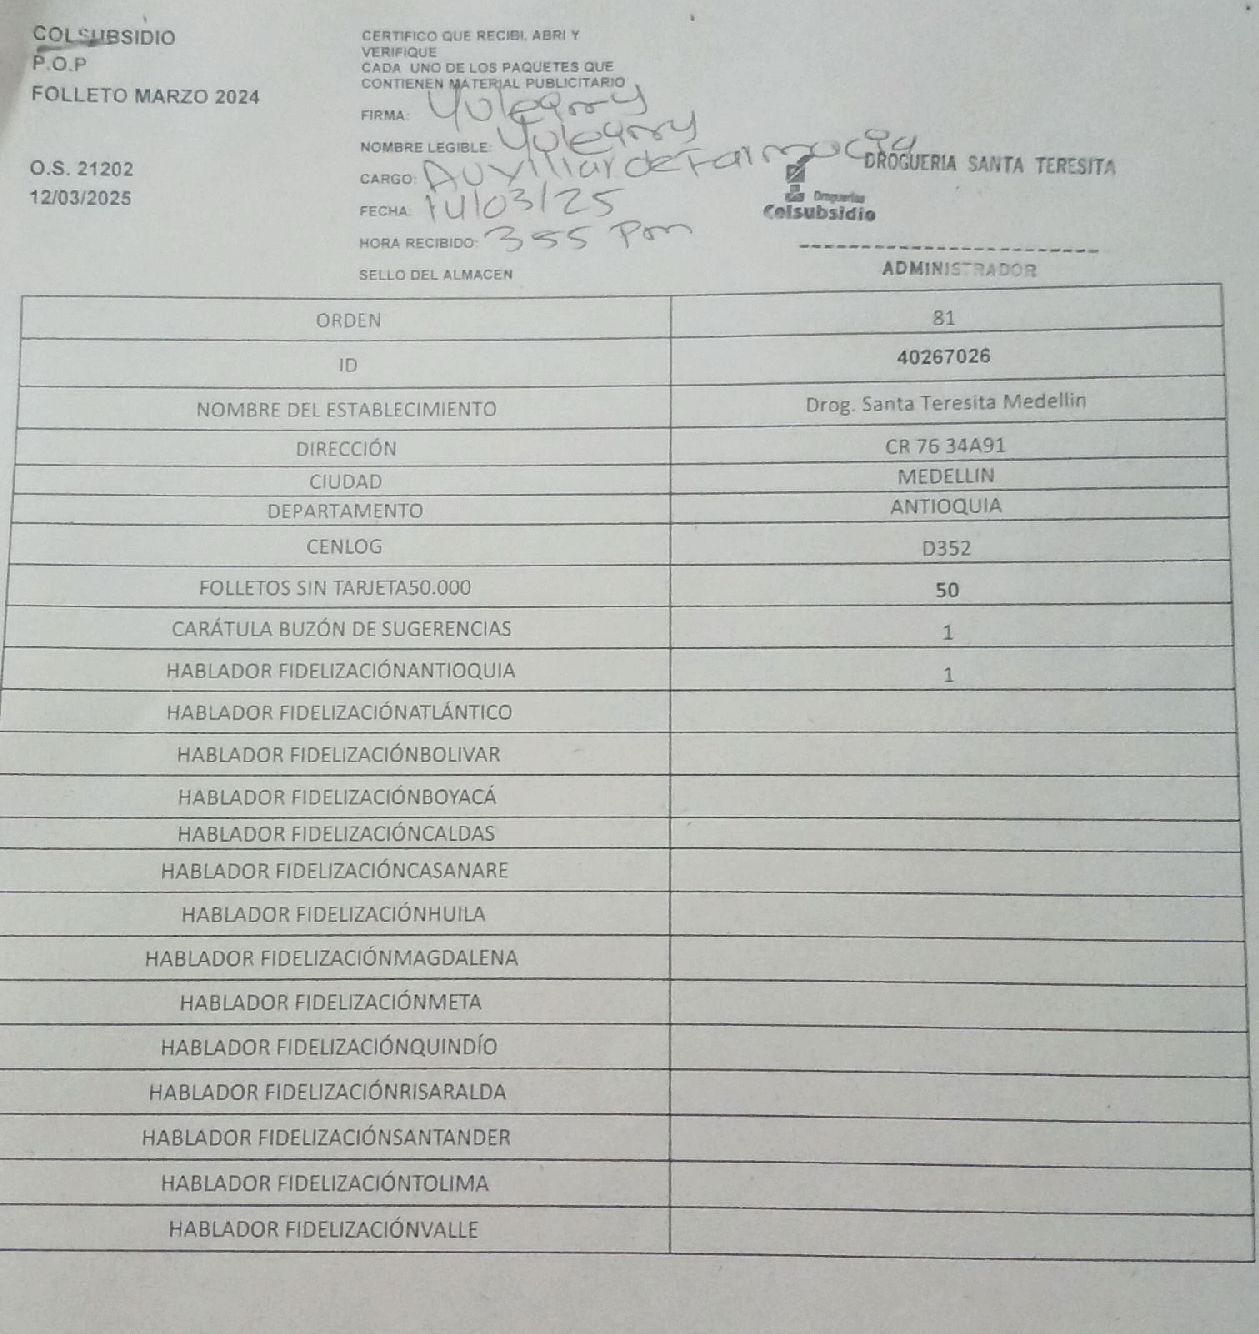 COLSUBSIDIO
P.O.P
FOLLETO MARZO 2024
O.S. 21202
12/03/2025
CERTIFICO QUE RECIBI, ABRI Y
VERIFIQUE
CADA UNO DE LOS PAQUETES QUE
CONTIENEN MATERIAL PUBLICITARIO
FIRMA:
NOMBRE LEGIBLE:
CARGO: Auxiliar de Farmacia
FECHA: 14/03/25
HORA RECIBIDO: 355 Pm
SELLO DEL ALMACEN
DROGUERIA SANTA TERESITA
Droguerías
Colsubsidio
ADMINISTRADOR
ORDEN 81
ID 40267026
NOMBRE DEL ESTABLECIMIENTO Drog. Santa Teresita Medellin
DIRECCIÓN CR 76 34A91
CIUDAD MEDELLIN
DEPARTAMENTO ANTIOQUIA
CENLOG D352
FOLLETOS SIN TARJETA50.000 50
CARÁTULA BUZÓN DE SUGERENCIAS 1
HABLADOR FIDELIZACIÓNANTIOQUIA 1
HABLADOR FIDELIZACIÓNATLÁNTICO
HABLADOR FIDELIZACIÓNBOLIVAR
HABLADOR FIDELIZACIÓNBOYACÁ
HABLADOR FIDELIZACIÓNCALDAS
HABLADOR FIDELIZACIÓNCASANARE
HABLADOR FIDELIZACIÓNHUILA
HABLADOR FIDELIZACIÓNMAGDALENA
HABLADOR FIDELIZACIÓNMETA
HABLADOR FIDELIZACIÓNQUINDÍO
HABLADOR FIDELIZACIÓNRISARALDA
HABLADOR FIDELIZACIÓNSANTANDER
HABLADOR FIDELIZACIÓNTOLIMA
HABLADOR FIDELIZACIÓNVALLE